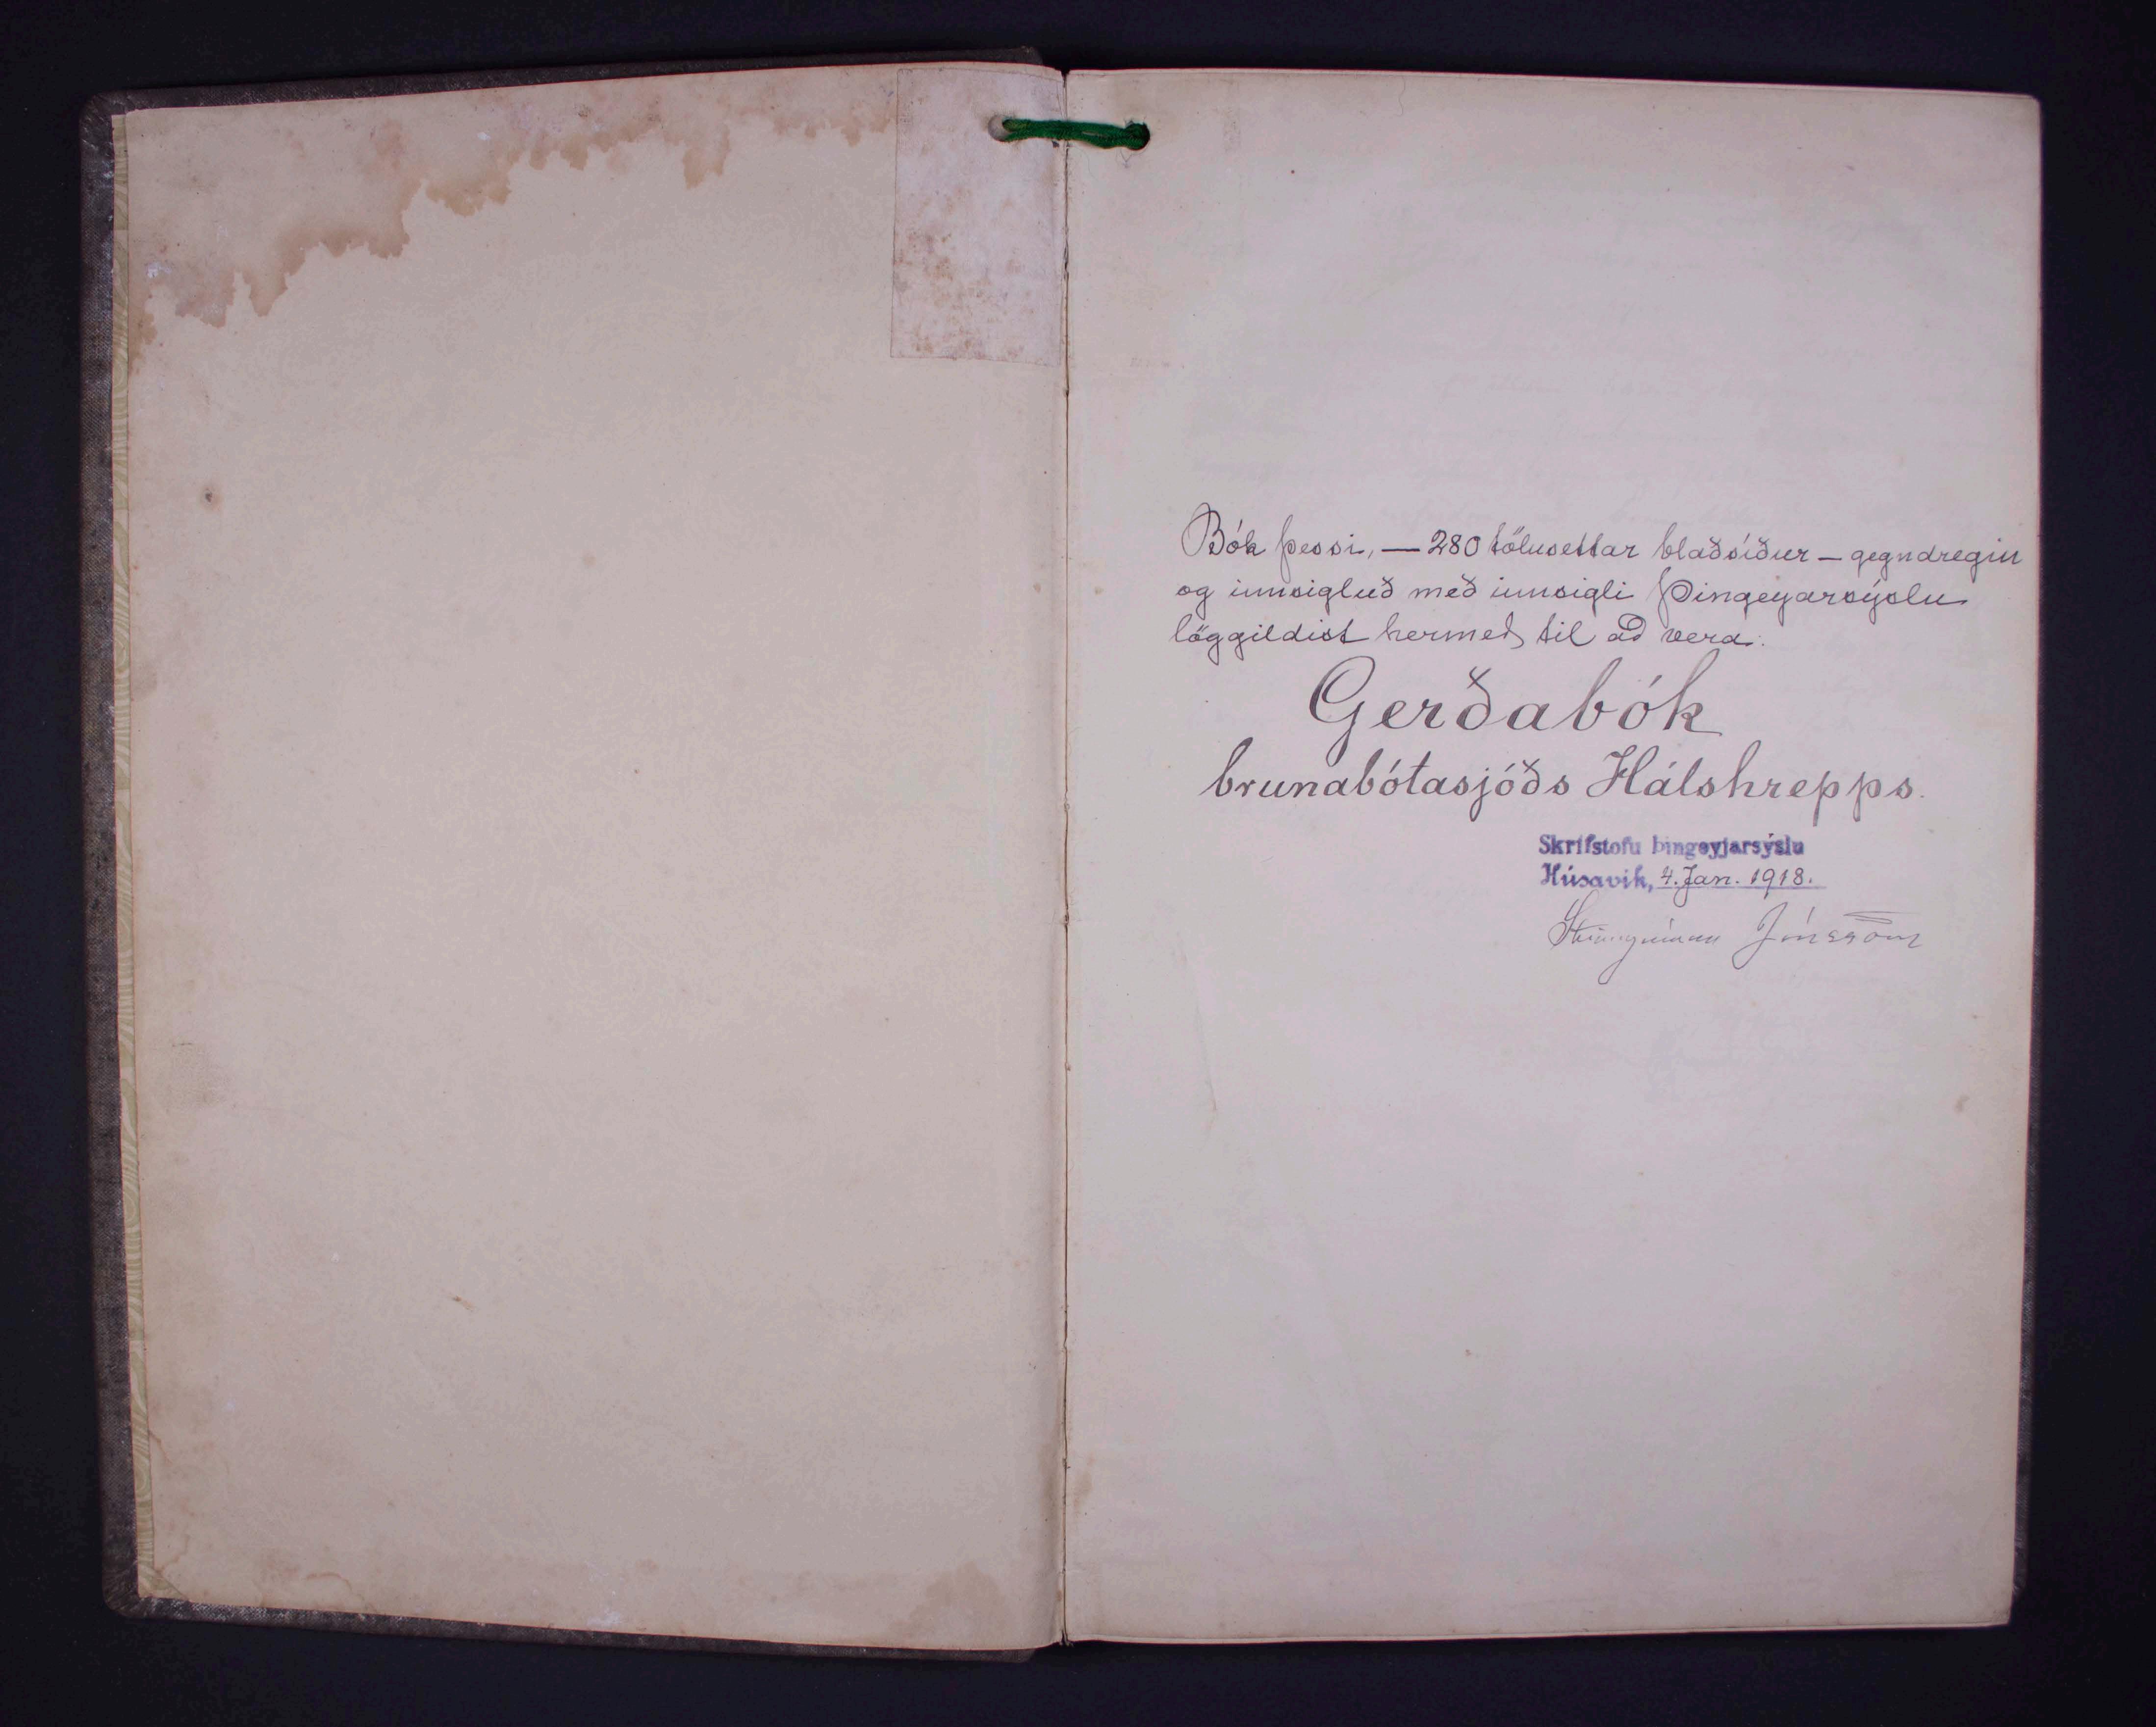 Bók þessi, — 280 tölusettar blaðsíður — gegndregin
og innsigluð með innsigli Þingeyarsýslu
löggildist hermeð til að vera:
Gerðabók
brunabótasjóðs Hálshrepps.
Skrifstofu Þingeyjarsýslu
Húsavik, 4. Jan. 1918.
Steingrímur Jónsson